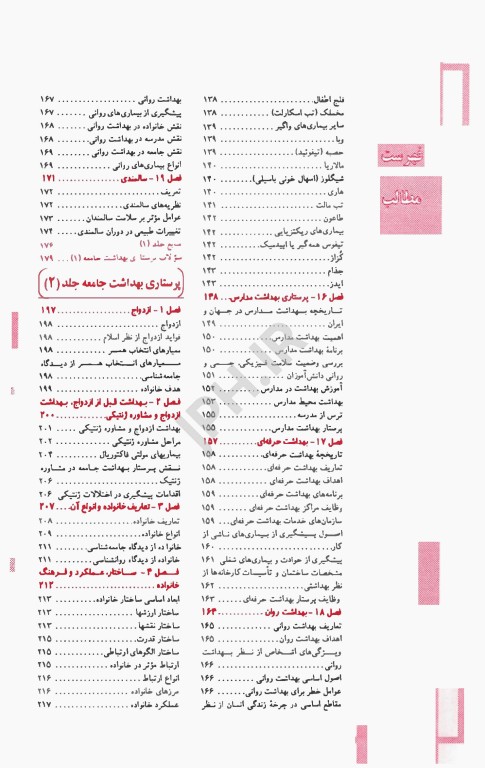 فهرست
مطالب
فلج اطفال ۱۳۸
مخملک (تب اسکارلت) ۱۳۸
سایر بیماری‌های واگیر ۱۳۹
وبا ۱۳۹
حصبه (تیفوئید) ۱۳۹
مالاریا ۱۴۰
شیگلوز (اسهال خونی باسیلی) ۱۴۰
هاری ۱۴۰
تب مالت ۱۴۱
طاعون ۱۴۲
بیماری‌های ریکتزیایی ۱۴۲
تیفوس همه‌گیر یا اپیدمیک ۱۴۲
کزاز ۱۴۲
جذام ۱۴۳
ایدز ۱۴۳
فصل ۱۶ - پرستاری بهداشت مدارس ۱۴۸
تاریخچه بهداشت مدارس در جهان و
ایران ۱۴۹
اهمیت بهداشت مدارس ۱۵۰
برنامهٔ بهداشت مدارس ۱۵۰
بررسی وضعیت سلامت فیزیکی، جسمی و
روانی دانش‌آموزان ۱۵۱
آموزش بهداشت در مدارس ۱۵۲
بهداشت محیط مدارس ۱۵۳
ترس از مدرسه ۱۵۵
پرستار بهداشت مدارس ۱۵۵
فصل ۱۷ - بهداشت حرفه‌ای ۱۵۷
تاریخچهٔ بهداشت حرفه‌ای ۱۵۸
تعاریف بهداشت حرفه‌ای ۱۵۸
اهداف بهداشت حرفه‌ای ۱۵۸
برنامه‌های بهداشت حرفه‌ای ۱۵۹
وظایف مراکز بهداشت حرفه‌ای ۱۵۹
سازمان‌های خدمات بهداشت حرفه‌ای ۱۵۹
اصول پیشگیری از بیماری‌های ناشی از
کار ۱۶۰
پیشگیری از حوادث و بیماری‌های شغلی ۱۶۱
مشخصات ساختمان و تأسیسات کارخانه‌ها از
نظر بهداشتی ۱۶۲
وظایف پرستار بهداشت حرفه‌ای ۱۶۳
فصل ۱۸ - بهداشت روان ۱۶۴
تعاریف بهداشت روانی ۱۶۵
اهداف بهداشت روان ۱۶۵
ویژگی‌های اشخاص از نظر بهداشت
روانی ۱۶۶
اصول اساسی بهداشت روانی ۱۶۶
عوامل خطر برای بهداشت روانی ۱۶۶
مقاطع اساسی در چرخهٔ زندگی انسان از نظر
بهداشت روانی ۱۶۷
پیشگیری از بیماری‌های روانی ۱۶۷
نقش خانواده در بهداشت روانی ۱۶۸
نقش مدرسه در بهداشت روانی ۱۶۸
نقش جامعه در بهداشت روانی ۱۶۹
انواع بیماری‌های روانی ۱۶۹
فصل ۱۹ - سالمندی ۱۷۱
تعریف ۱۷۲
نظریه‌های سالمندی ۱۷۲
عوامل مؤثر بر سلامت سالمندان ۱۷۳
تغییرات طبیعی در دوران سالمندی ۱۷۴
منابع جلد (۱) ۱۷۶
سؤالات پرستاری بهداشت جامعه (۱) ۱۷۹
پرستاری بهداشت جامعه جلد (۲)
فصل ۱ - ازدواج ۱۹۷
ازدواج ۱۹۸
فواید ازدواج از نظر اسلام ۱۹۸
معیارهای انتخاب همسر ۱۹۸
معیارهای انتخاب همسر از دیدگاه
جامعه‌شناسی ۱۹۸
هدف خانواده ۱۹۹
فصل ۲ - بهداشت قبل از ازدواج، بهداشت
ازدواج و مشاوره ژنتیکی ۲۰۰
بهداشت ازدواج و مشاوره ژنتیکی ۲۰۱
مراحل مشاوره ژنتیکی ۲۰۲
بیماریهای مولتی فاکتوریال ۲۰۴
نقش پرستار بهداشت جامعه در مشاوره
ژنتیک ۲۰۶
اقدامات پیشگیری در اختلالات ژنتیکی ۲۰۶
فصل ۳ - تعاریف خانواده و انواع آن ۲۰۷
تعاریف خانواده ۲۰۸
انواع خانواده ۲۰۹
خانواده از دیدگاه جامعه‌شناسی ۲۱۱
خانواده از دیدگاه روانشناسی ۲۱۱
فصل ۴ - ساختار، عملکرد و فرهنگ
خانواده ۲۱۲
ابعاد اساسی ساختار خانواده ۲۱۳
ساختار ارزشها ۲۱۳
ساختار نقشها ۲۱۳
ساختار قدرت ۲۱۵
ساختار الگوهای ارتباطی ۲۱۵
ارتباط مؤثر در خانواده ۲۱۵
انواع ارتباط ۲۱۶
مرزهای خانواده ۲۱۶
عملکرد خانواده ۲۱۷
IPH.IR